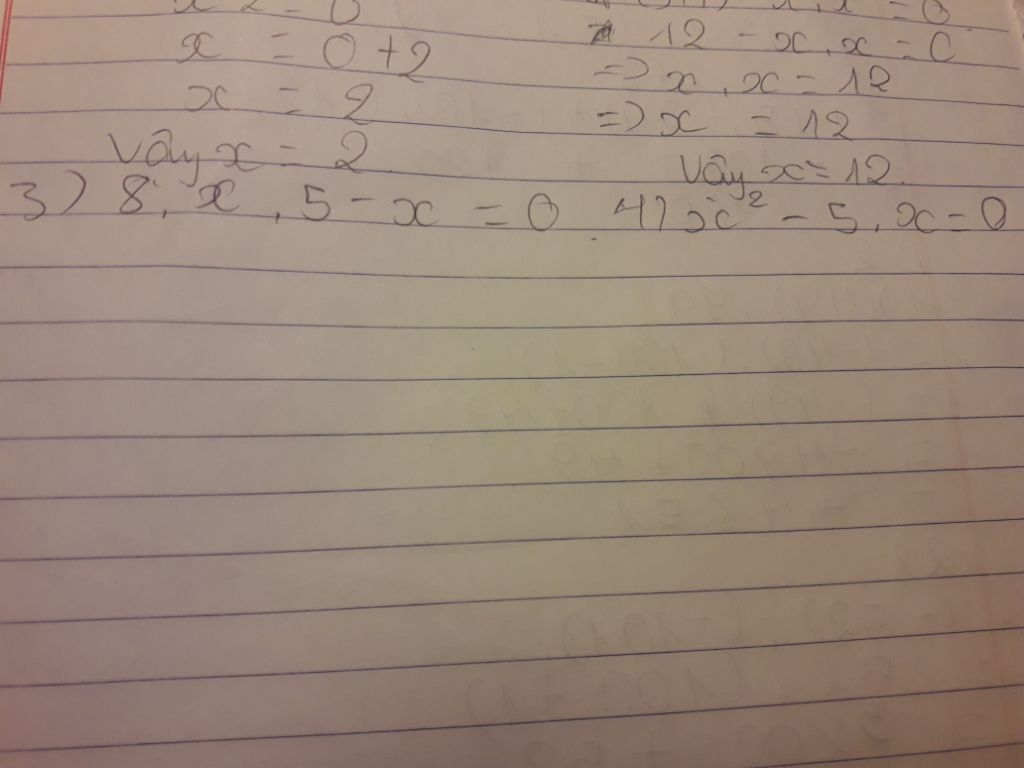 x = 0 + 2
x = 2
Vậy x = 2
12 - x . x = 0
=> x . x = 12
=> x = 12
Vậy x = 12.
3) 8 . x . 5 - x = 0
4) x² - 5 . x = 0